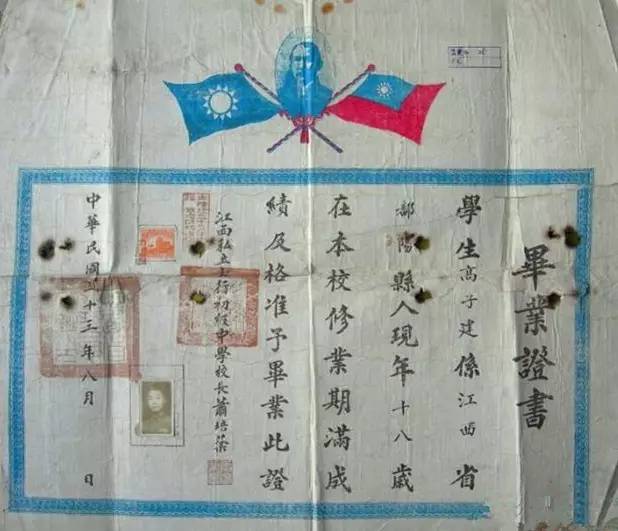 畢業證書
學生高子建係江西省
鄱陽縣人現年十八歲
在本校修業期滿成
績及格准予畢業此證
江西私立士行初級中學校長蕭培
中華民國三十三年八月 日